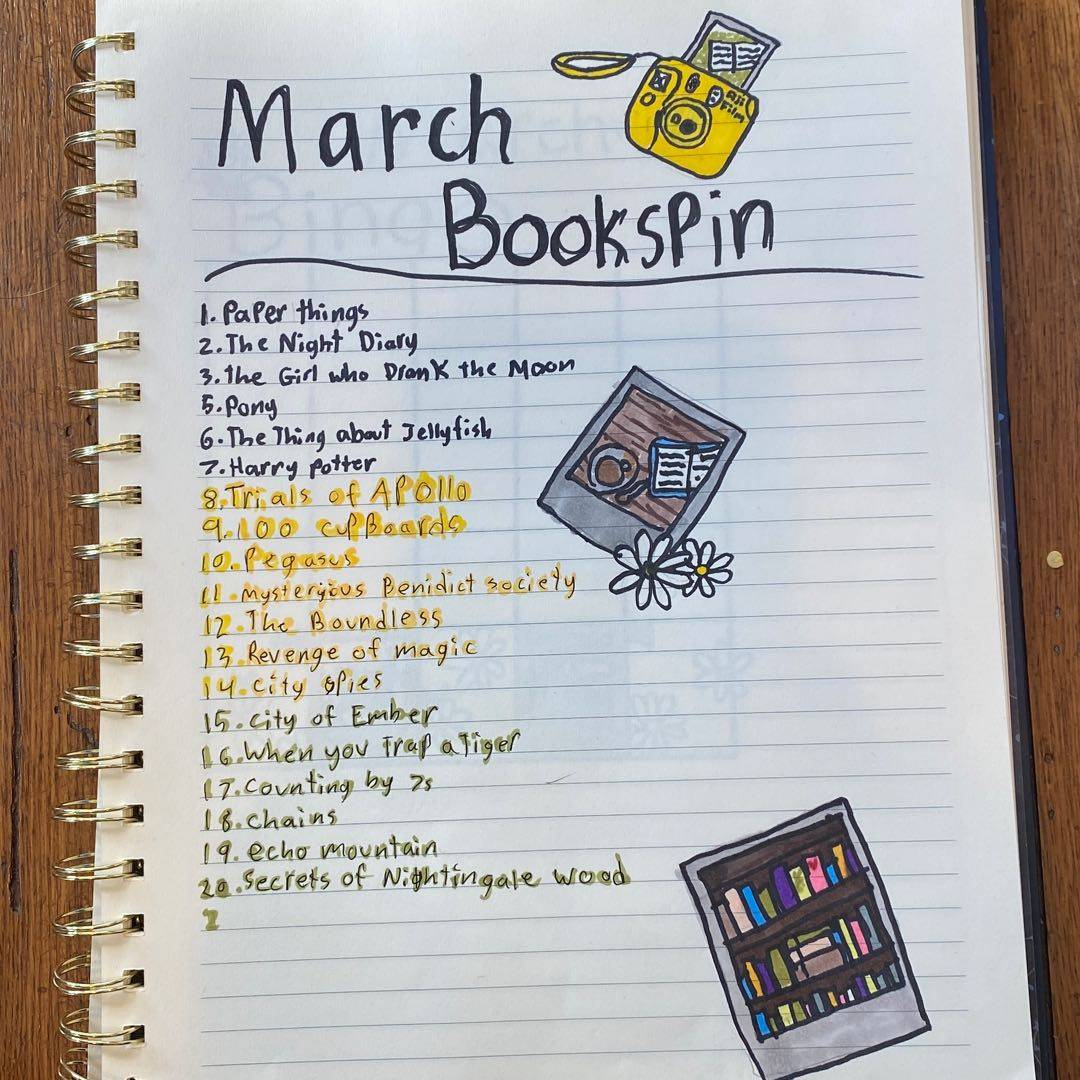 March
Fuji
Film
BookSpin
1. Paper things
2. The Night Diary
3. The Girl who Drank the Moon
5. Pony
6. The Thing about Jellyfish
7. Harry Potter
8. Trials of APOllo
9. 100 cupBoards
10. Pegasus
11. Mysteryious Benidict society
12. The Boundless
13. Revenge of magic
14. City spies
15. City of Ember
16. When you Trap a Tiger
17. Counting by 7s
18. Chains
19. echo mountain
20. Secrets of Nightingale wood
2